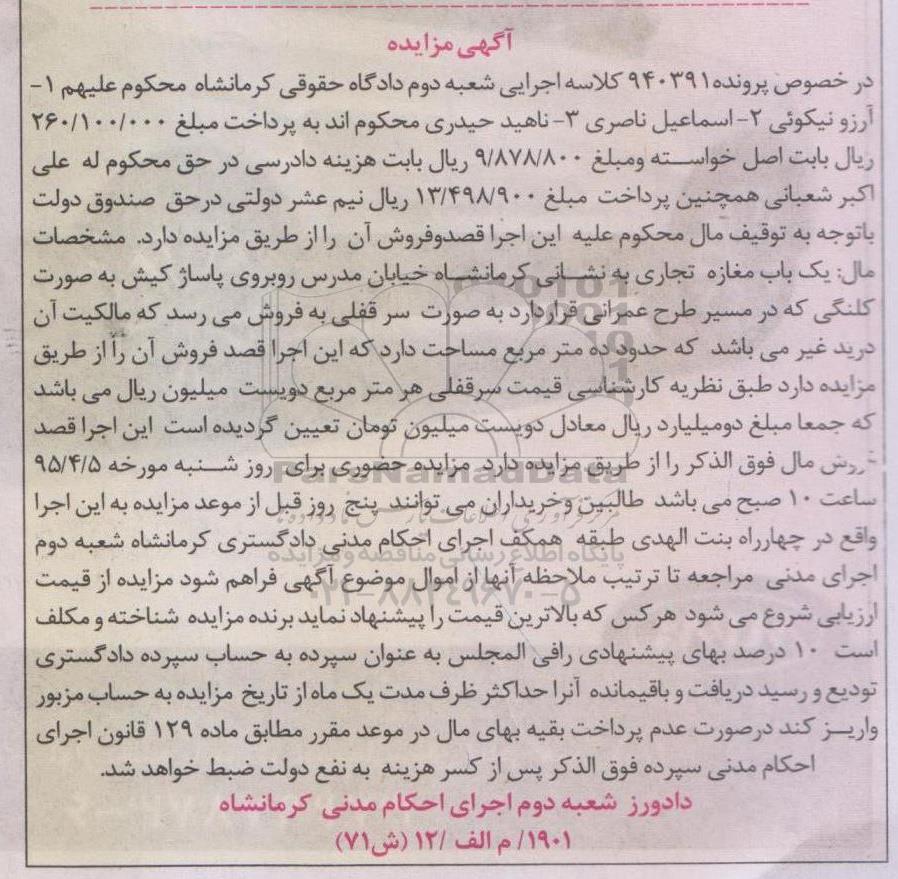 آگهی مزایده
در خصوص پرونده۹۴۰۳۹۱ کلاسه اجرایی شعبه دوم دادگاه حقوقی کرمانشاه محکوم علیهم ۱-
آرزو نیکوئی ۲- اسماعیل ناصری ۳- ناهید حیدری محکوم اند به پرداخت مبلغ ۲۶۰/۱۰۰/۰۰۰
ریال بابت اصل خواسته ومبلغ ۹/۸۷۸/۸۰۰ ریال بابت هزینه دادرسی در حق محکوم له علی
اکبر شعبانی همچنین پرداخت مبلغ ۱۳/۴۹۸/۹۰۰ ریال نیم عشر دولتی درحق صندوق دولت
باتوجه به توقیف مال محکوم علیه این اجرا قصدوفروش آن را از طریق مزایده دارد. مشخصات
مال: یک باب مغازه تجاری به نشانی کرمانشاه خیابان مدرس روبروی پاساژ کیش به صورت
کلنگی که در مسیر طرح عمرانی قراردارد به صورت سر قفلی به فروش می رسد که مالکیت آن
درید غیر می باشد که حدود ده متر مربع مساحت دارد که این اجرا قصد فروش آن را از طریق
مزایده دارد طبق نظریه کارشناسی قیمت سرقفلی هر متر مربع دویست میلیون ریال می باشد
که جمعا مبلغ دومیلیارد ریال معادل دویست میلیون تومان تعیین گردیده است این اجرا قصد
فروش مال فوق الذکر را از طریق مزایده دارد مزایده حضوری برای روز شنبه مورخه ۹۵/۴/۵
ساعت ۱۰ صبح می باشد طالبین وخریداران می توانند پنج روز قبل از موعد مزایده به این اجرا
واقع در چهارراه بنت الهدی طبقه همکف اجرای احکام مدنی دادگستری کرمانشاه شعبه دوم
اجرای مدنی مراجعه تا ترتیب ملاحظه آنها از اموال موضوع آگهی فراهم شود مزایده از قیمت
ارزیابی شروع می شود هرکس که بالاترین قیمت را پیشنهاد نماید برنده مزایده شناخته و مکلف
است ۱۰ درصد بهای پیشنهادی رافی المجلس به عنوان سپرده به حساب سپرده دادگستری
تودیع و رسید دریافت و باقیمانده آنرا حداکثر ظرف مدت یک ماه از تاریخ مزایده به حساب مزبور
واریز کند درصورت عدم پرداخت بقیه بهای مال در موعد مقرر مطابق ماده ۱۲۹ قانون اجرای
احکام مدنی سپرده فوق الذکر پس از کسر هزینه به نفع دولت ضبط خواهد شد.
دادورز شعبه دوم اجرای احکام مدنی کرمانشاه
۱۹۰۱/ م الف /۱۲ (ش۷۱)
ParsNamadData
پایگاه اطلاع رسانی مناقصه و مزایده
۰۲۱-۸۸۳۴۹۶۷۰-۵